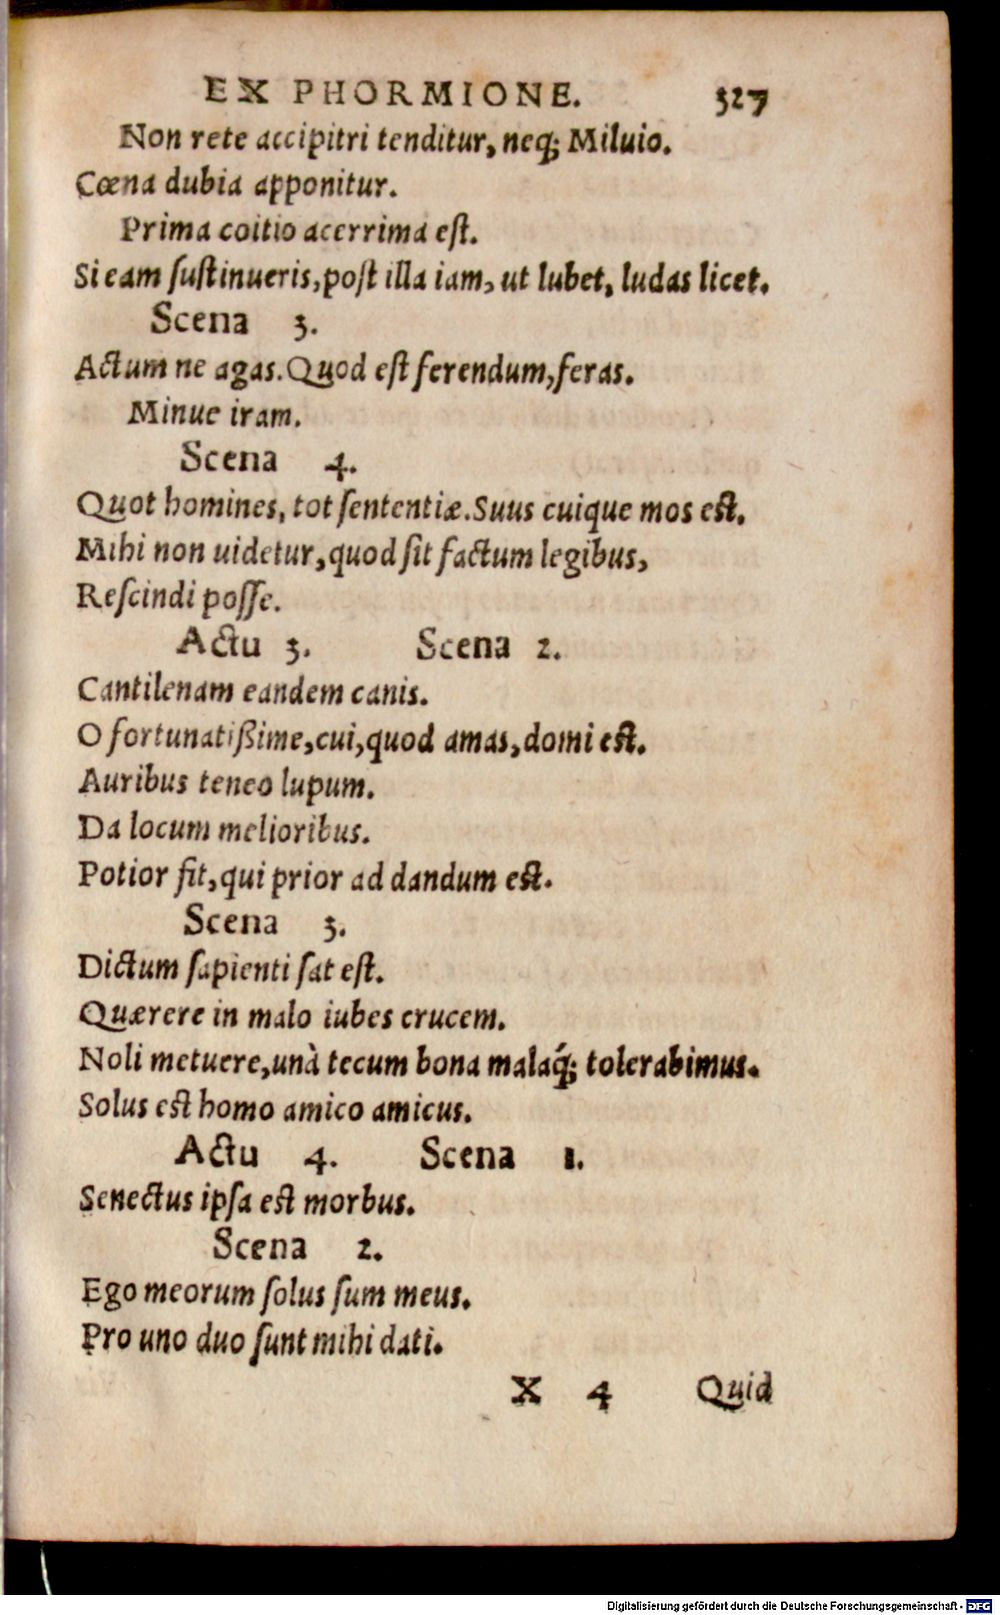 EX PHORMIONE. 327
Non rete accipitri tenditur, neq; Miluio.
Cœna dubia apponitur.
Prima coitio acerrima est.
Si eam sustinueris, post illa iam, ut lubet, ludas licet.
Scena 3.
Actum ne agas. Quod est ferendum, feras.
Minue iram.
Scena 4.
Quot homines, tot sententiæ. Suus cuique mos est.
Mihi non uidetur, quod sit factum legibus,
Rescindi posse.
Actu 3. Scena 2.
Cantilenam eandem canis.
O fortunatißime, cui, quod amas, domi est.
Auribus teneo lupum.
Da locum melioribus.
Potior sit, qui prior ad dandum est.
Scena 3.
Dictum sapienti sat est.
Quærere in malo iubes crucem.
Noli metuere, unà tecum bona malaq́; tolerabimus.
Solus est homo amico amicus.
Actu 4. Scena 1.
Senectus ipsa est morbus.
Scena 2.
Ego meorum solus sum meus.
Pro uno duo sunt mihi dati.
X 4 Quid
Digitalisierung gefördert durch die Deutsche Forschungsgemeinschaft - DFG